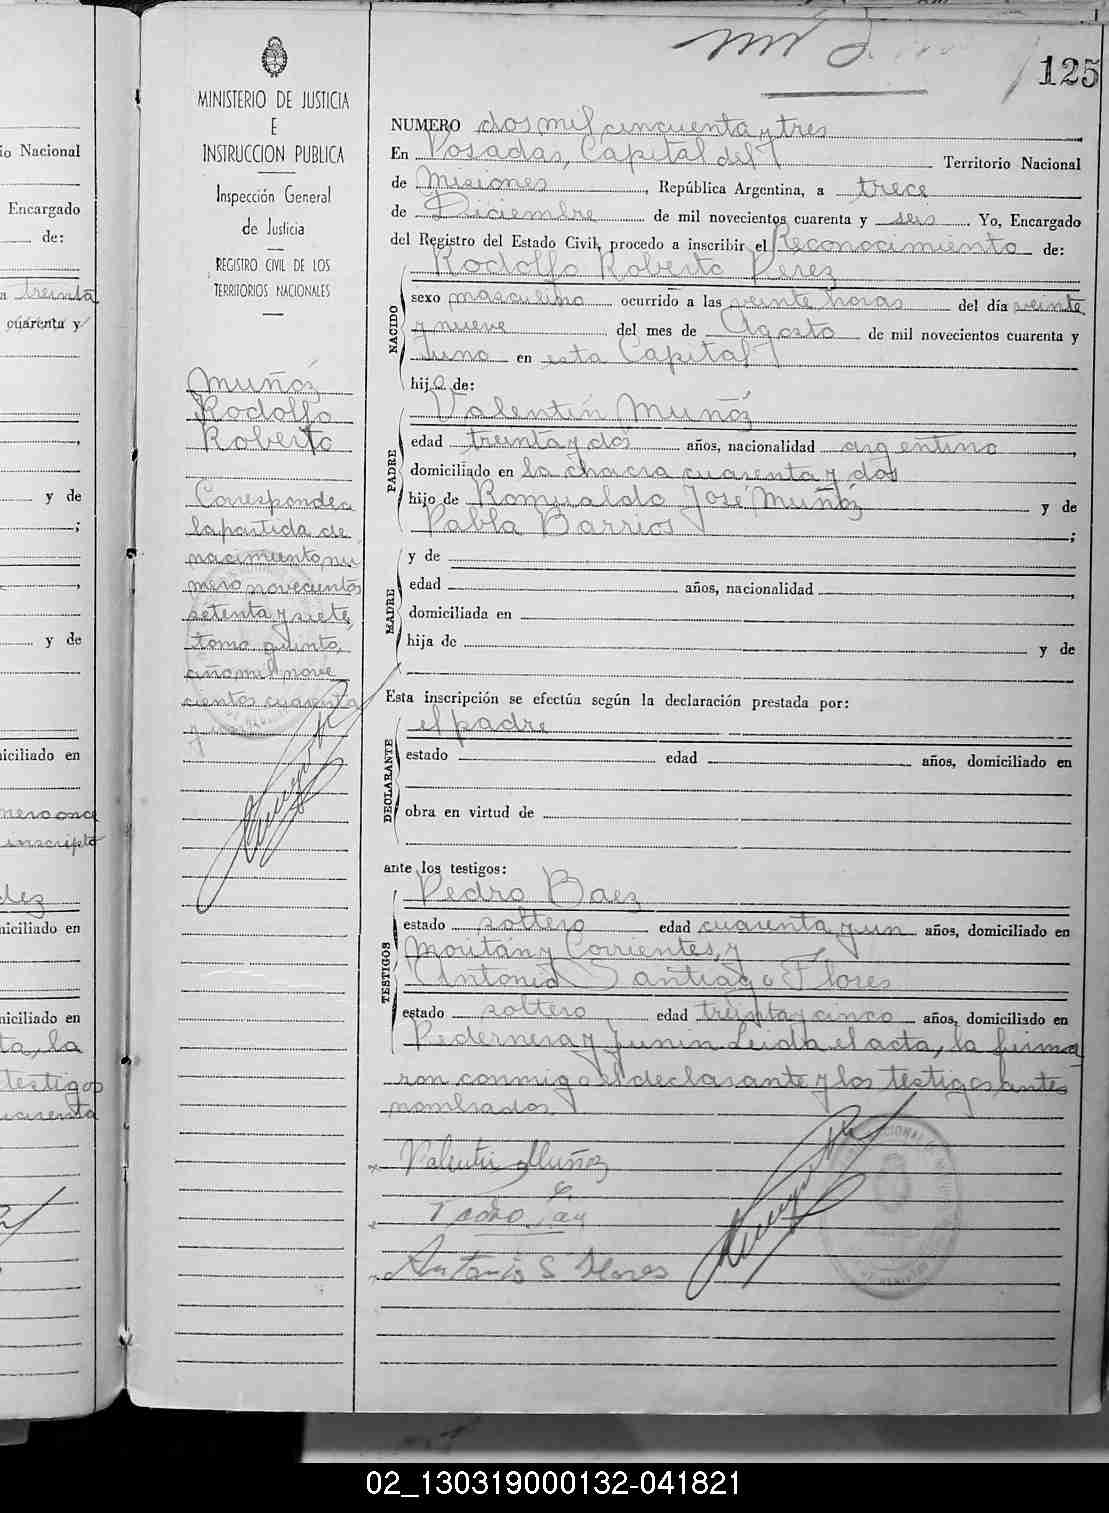 125
MINISTERIO DE JUSTICIA
E
INSTRUCCION PUBLICA
Inspección General
de Justicia
REGISTRO CIVIL DE LOS
TERRITORIOS NACIONALES
Muñóz
Rodolfo
Roberto
Corresponde a
la partida de
nacimiento nu
mero novecientos
setenta y siete,
tomo quinto,
año mil nove
cientos cuarenta
y
NUMERO dos mil cincuenta y tres
En Posadas, Capital del Territorio Nacional
de Misiones, República Argentina, a trece
de Diciembre de mil novecientos cuarenta y seis. Yo, Encargado
del Registro del Estado Civil, procedo a inscribir el Reconocimiento de:
Rodolfo Roberto Perez
NACIDO
sexo masculino ocurrido a las veinte horas del día veinte
y nueve del mes de Agosto de mil novecientos cuarenta y
uno en esta Capital
hijo de:
PADRE
Valentín Muñóz
edad treinta y dos años, nacionalidad argentino,
domiciliado en la chacra cuarenta y dos
hijo de Romualdo José Muñóz y de
Pabla Barrios;
MADRE
y de
edad años, nacionalidad,
domiciliada en
hija de y de
Esta inscripción se efectúa según la declaración prestada por:
DECLARANTE
el padre
estado edad años, domiciliado en
obra en virtud de
ante los testigos:
TESTIGOS
Pedro Baez
estado soltero edad cuarenta y un años, domiciliado en
Moritán y Corrientes, y
Antonio Santiago Flores
estado soltero edad treinta y cinco años, domiciliado en
Pedernera y Junin Leida el acta, la firma
ron conmigo el declarante y los testigos antes
nombrados.
Valentin Muñóz
Pedro
Antonio S Flores
io Nacional
Encargado
de:
treinta
cuarenta y
y de
;
y de
iciliado en
mero once
inscripto
dez
niciliado en
niciliado en
ta, la
testigos
cuarenta
02_130319000132-041821